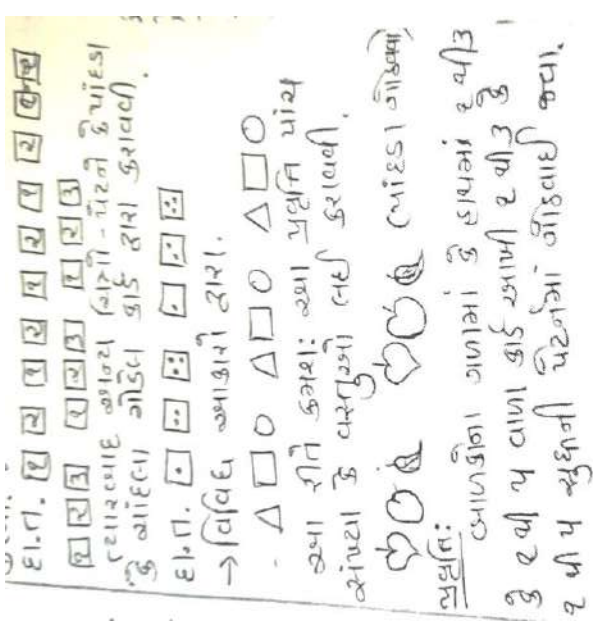 દા.ત. ૧ ૨ ૧ ૨ ૧ ૨ ૧ ૨
૧ ૨ ૩ ૧ ૨ ૩ ૧ ૨ ૩
ત્યારબાદ અન્ય પેટર્ન કે પાંદડા
કે ચાંદલા ચોડેલ કાર્ડ દ્વારા કરાવવી.
દા.ત.
→ વિવિધ આકારો દ્વારા.
- △ □ ○ △ □ ○ △ □ ○
આ રીતે ક્રમશઃ આ પ્રવૃત્તિ પાંચ
સંખ્યા કે વસ્તુઓ લઈ કરાવવી.
(પાંદડા ગોઠવવા)
પ્રવૃત્તિ:
બાળકોના ગળામાં કે હાથમાં ૧ થી ૩
કે ૧ થી ૫ વાળા કાર્ડ આપી ૧ થી ૩ કે
૧ થી ૫ સુધીની પેટર્નમાં ગોઠવાઈ જવા.